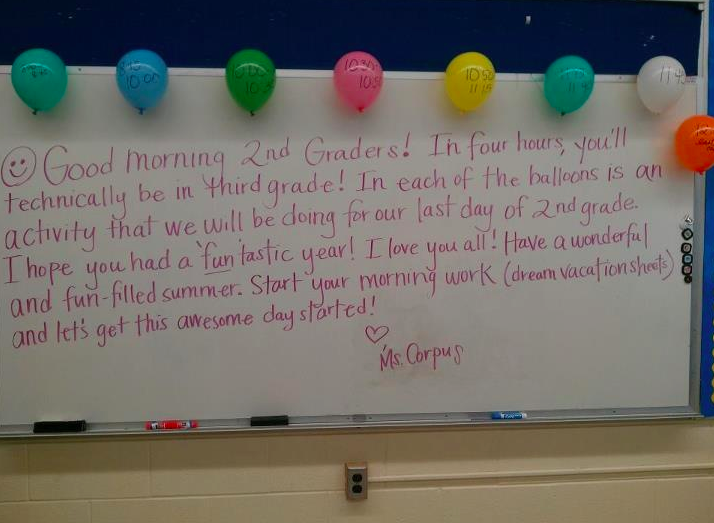 10:00
10:30
10:50
11:15
Good morning 2nd Graders! In four hours, you'll
technically be in third grade! In each of the balloons is an
activity that we will be doing for our last day of 2nd grade.
I hope you had a 'fun'tastic year! I love you all! Have a wonderful
and fun-filled summer. Start your morning work (dream vacation sheets)
and let's get this awesome day started!
Ms. Corpus